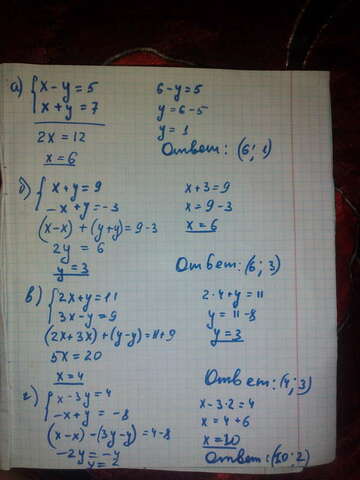 а) { x - y = 5
x + y = 7
2x = 12
x = 6
6 - y = 5
y = 6 - 5
y = 1
Ответ: (6; 1)
б) { x + y = 9
-x + y = -3
(x-x) + (y+y) = 9-3
2y = 6
y = 3
x + 3 = 9
x = 9 - 3
x = 6
Ответ: (6; 3)
в) { 2x + y = 11
3x - y = 9
(2x + 3x) + (y - y) = 11 + 9
5x = 20
x = 4
2·4 + y = 11
y = 11 - 8
y = 3
Ответ: (4; 3)
г) { x - 3y = 4
-x + y = -8
(x-x) - (3y-y) = 4-8
-2y = -4
y = 2
x - 3·2 = 4
x = 4 + 6
x = 10
Ответ: (10; 2)